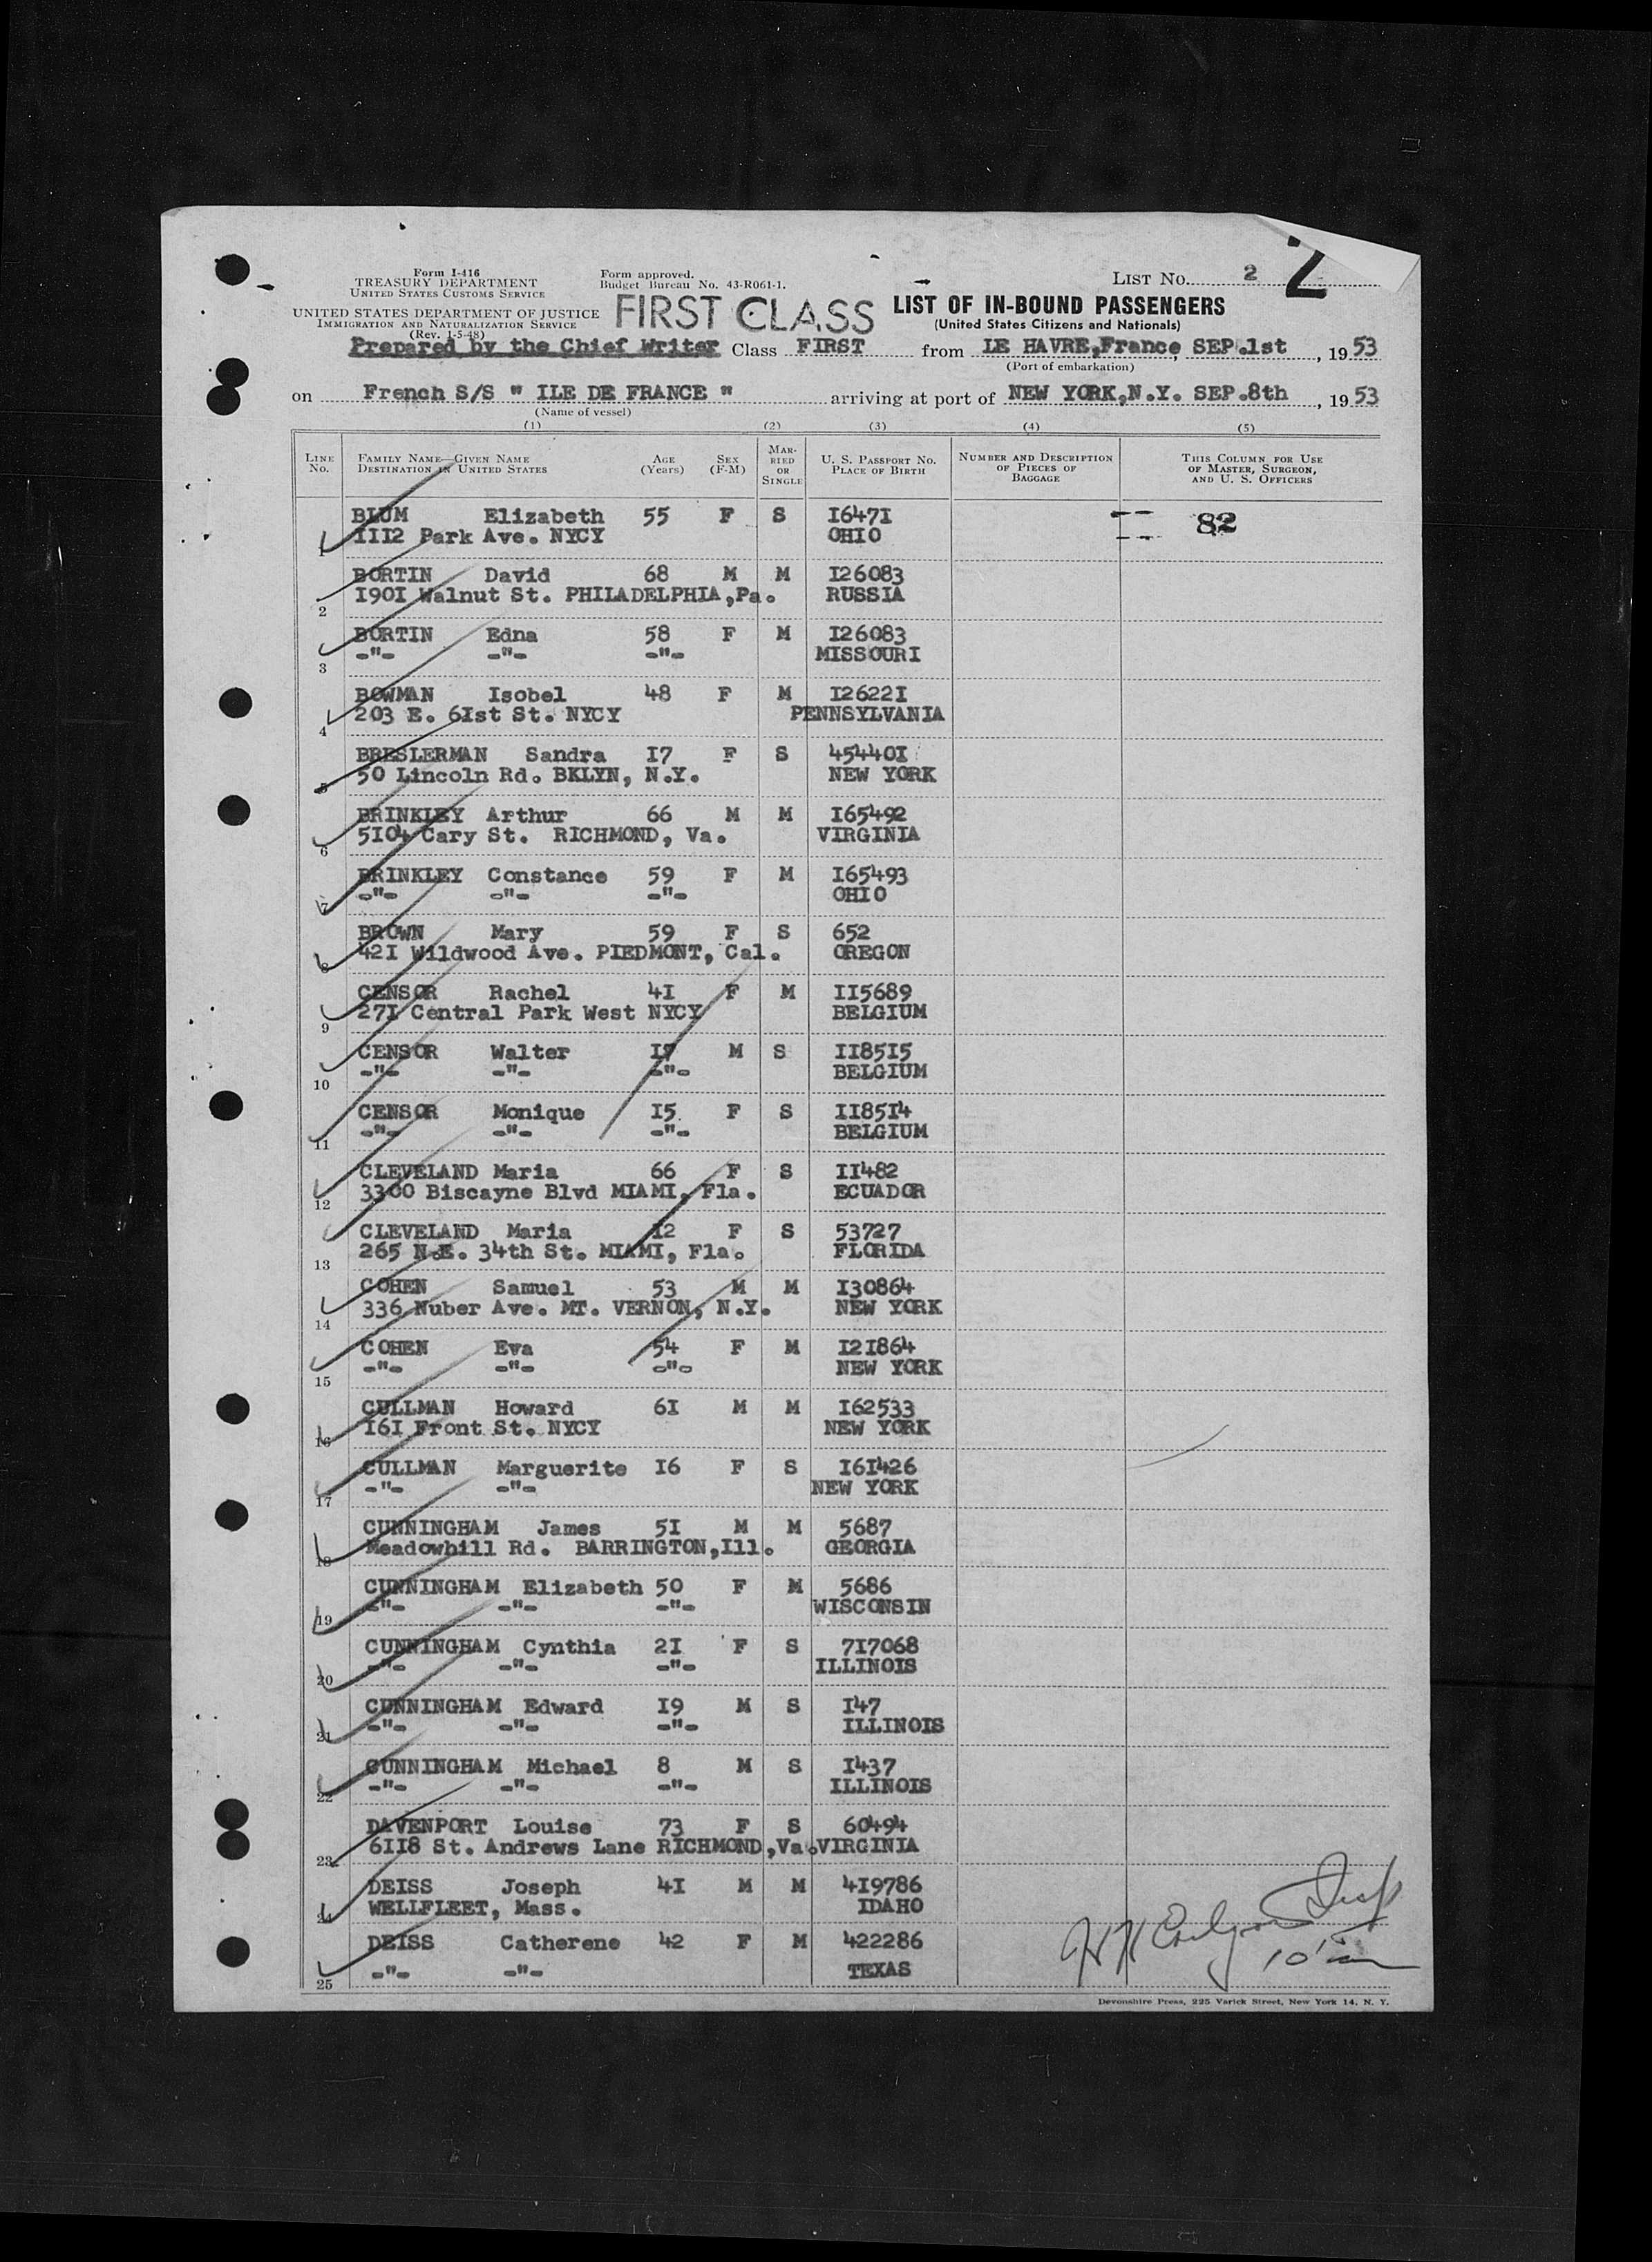 Form I-416
TREASURY DEPARTMENT
UNITED STATES CUSTOMS SERVICE
UNITED STATES DEPARTMENT OF JUSTICE
IMMIGRATION AND NATURALIZATION SERVICE
(Rev. 1-5-48)
Form approved.
Budget Bureau No. 43-R061-1.
LIST No. 2 2
FIRST CLASS
LIST OF IN-BOUND PASSENGERS
(United States Citizens and Nationals)
Prepared by the Chief Writer Class FIRST from LE HAVRE,France, SEP.1st, 1953
(Port of embarkation)
on French S/S " ILE DE FRANCE " arriving at port of NEW YORK,N.Y. SEP.8th, 1953
(Name of vessel)
(1) (2) (3) (4) (5)
LINE No. FAMILY NAME—GIVEN NAME DESTINATION IN UNITED STATES AGE (Years) SEX (F-M) MARRIED OR SINGLE U. S. PASSPORT NO. PLACE OF BIRTH NUMBER AND DESCRIPTION OF PIECES OF BAGGAGE THIS COLUMN FOR USE OF MASTER, SURGEON, AND U. S. OFFICERS
BLUM Elizabeth 55 F S I647I -- 82
1 III2 Park Ave. NYCY OHIO --
BORTIN David 68 M M I26083
2 I90I Walnut St. PHILADELPHIA,Pa. RUSSIA
BORTIN Edna 58 F M I26083
3 -"- -"- -"- MISSOURI
BOWMAN Isobel 48 F M I2622I
4 203 E. 6Ist St. NYCY PENNSYLVANIA
BRESLERMAN Sandra I7 F S 45440I
5 50 Lincoln Rd. BKLYN, N.Y. NEW YORK
BRINKLEY Arthur 66 M M I65492
6 5I04 Cary St. RICHMOND, Va. VIRGINIA
BRINKLEY Constance 59 F M I65493
7 -"- -"- -"- OHIO
BROWN Mary 59 F S 652
8 42I Wildwood Ave. PIEDMONT, Cal. OREGON
CENSOR Rachel 4I F M II5689
9 27I Central Park West NYCY BELGIUM
CENSOR Walter I7 M S II85I5
10 -"- -"- -"- BELGIUM
CENSOR Monique I5 F S II85I4
11 -"- -"- -"- BELGIUM
CLEVELAND Maria 66 F S II482
12 3300 Biscayne Blvd MIAMI, Fla. ECUADOR
CLEVELAND Maria I2 F S 53727
13 265 N.E. 34th St. MIAMI, Fla. FLORIDA
COHEN Samuel 53 M M I30864
14 336 Nuber Ave. MT. VERNON, N.Y. NEW YORK
COHEN Eva 54 F M I2I864
15 -"- -"- -"- NEW YORK
CULLMAN Howard 6I M M I62533
16 I6I Front St. NYCY NEW YORK
CULLMAN Marguerite I6 F S I6I426
17 -"- -"- NEW YORK
CUNNINGHAM James 5I M M 5687
18 Meadowhill Rd. BARRINGTON,Ill. GEORGIA
CUNNINGHAM Elizabeth 50 F M 5686
19 -"- -"- -"- WISCONSIN
CUNNINGHAM Cynthia 2I F S 7I7068
20 -"- -"- -"- ILLINOIS
CUNNINGHAM Edward I9 M S I47
21 -"- -"- -"- ILLINOIS
CUNNINGHAM Michael 8 M S I437
22 -"- -"- -"- ILLINOIS
DAVENPORT Louise 73 F S 60494
23 6II8 St. Andrews Lane RICHMOND,Va. VIRGINIA
DEISS Joseph 4I M M 4I9786
24 WELLFLEET, Mass. IDAHO
DEISS Catherene 42 F M 422286
25 -"- -"- TEXAS
Devonshire Press, 225 Varick Street, New York 14, N. Y.